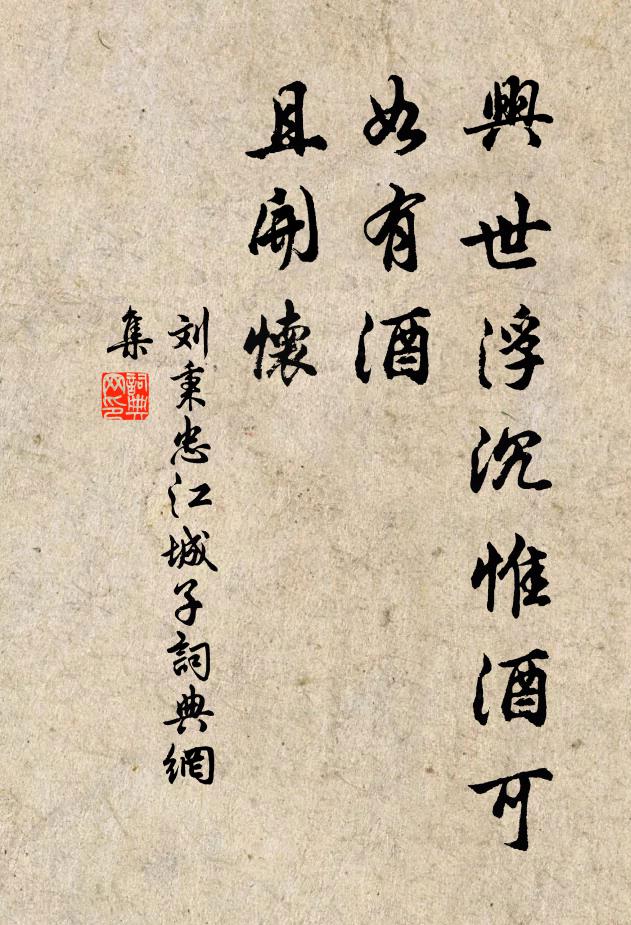 興世浮沉惟酒可
如有酒
且開懷
刘秉忠江城子詞典網
集
詞典网印